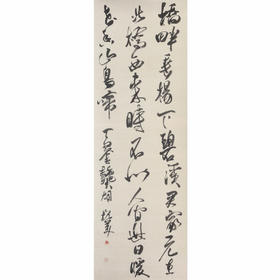 橋畔垂楊下碧溪君家元在
北橋西來時不似人間世日暖
花香山鳥啼